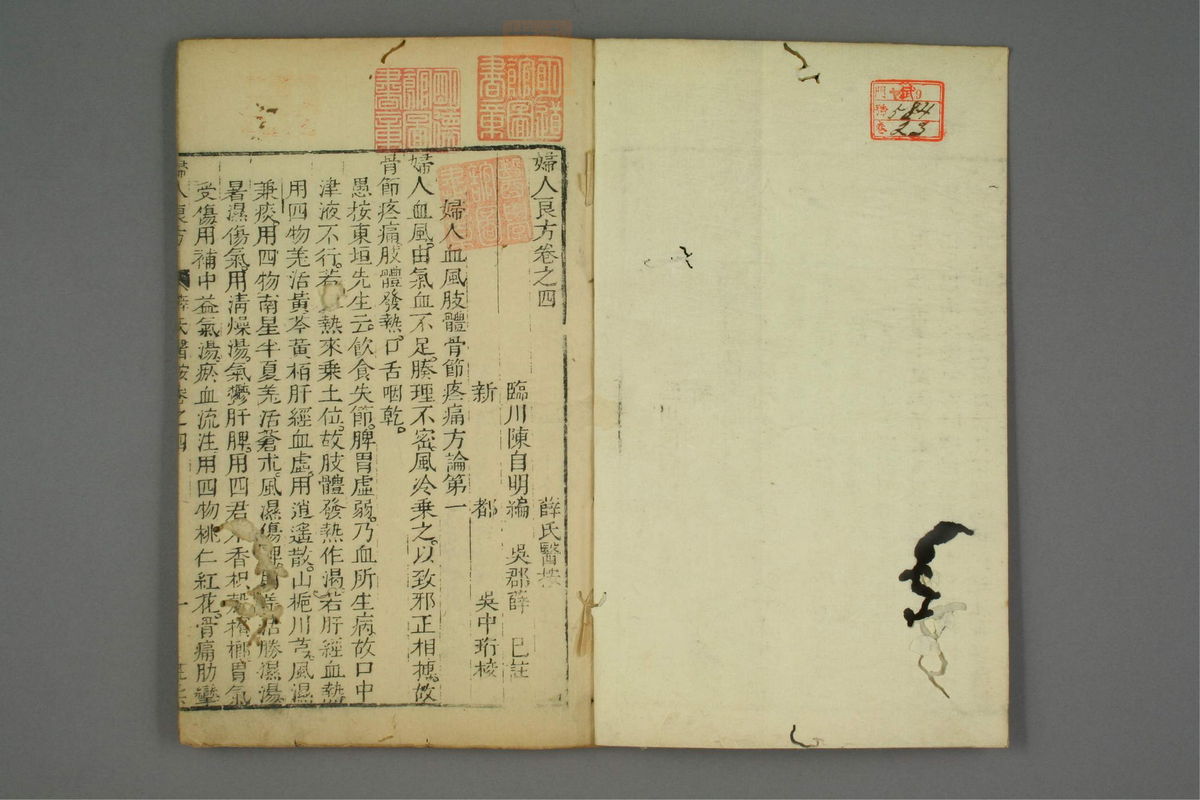 584
23
婦人良方卷之四
薛氏醫按
臨川陳自明編 吳郡薛 已註
新 都 吳中珩校
婦人血風肢體骨節疼痛方論第一
婦人血風由氣血不足腠理不密風冷乘之以致邪正相搏故
骨節疼痛肢體發熱口舌咽乾。
愚按東垣先生云飲食失節脾胃虛弱乃血所生病故口中
津液不行若 熱來乘土位故肢體發熱作渴若肝經血熱
用四物羌活黃芩黃栢肝經血虛用逍遙散山梔川芎風濕
兼痰用四物南星半夏羌活蒼朮風濕傷脾 羌活勝濕湯
暑濕傷氣用清燥湯氣鬱肝脾用四君木香枳殼檳榔胃氣
受傷用補中益氣湯瘀血流注用四物桃仁紅花骨痛肋攣
婦人良方 薛氏醫按卷之四 一